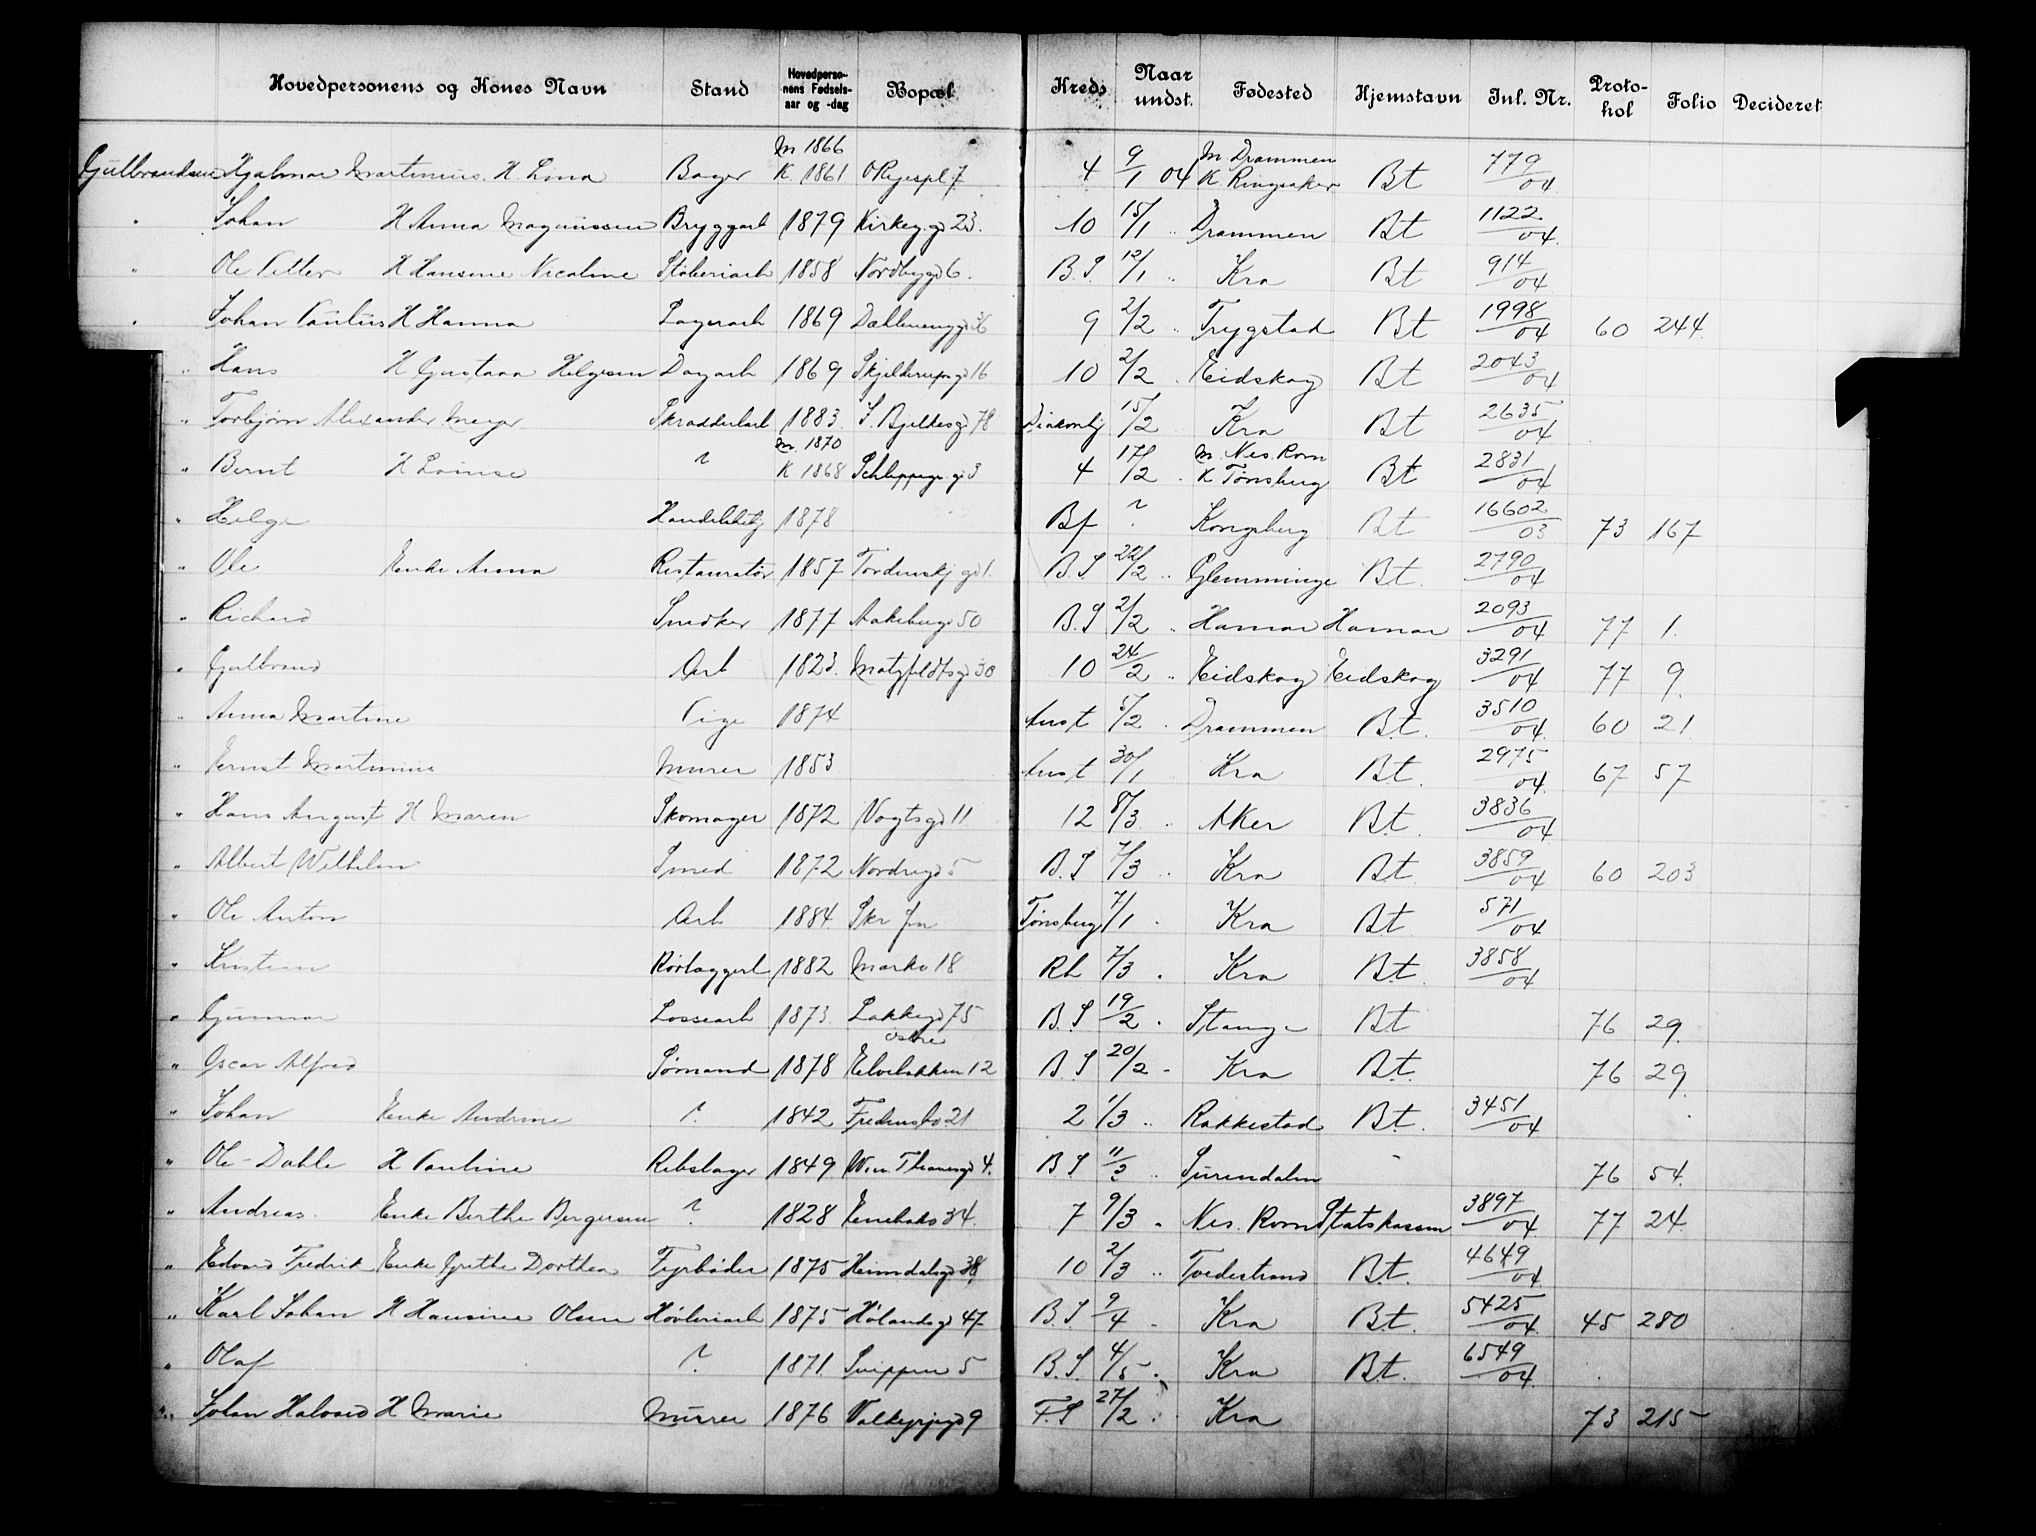 Hovedpersonens og Kones Navn Stand Hovedpersonens Fødselsaar og -dag Bopæl Kreds Naar undst. Fødested Hjemstavn Inl. Nr. Protohol Folio Decideret
Gulbrandsen Hjalmar Martinius H. Lina Bager M 1866 K 1861 O Ryespl 7 4 9/1 04 M Drammen K. Ringsaker Bt 779/04
" Johan H Anna Magnussen Bryggarb 1879 Kirkeg. gd 23. 10 15/1 " Drammen Bt 1122/04
" Ole Petter H Hansine Nicoline Støberiarb 1858 Nordbygd 6. B. S 12/1 " Kra Bt 914/04
" Johan Paulus H Hanna Lagerarb 1869 Dælenenggd 36 9 2/2 " Trygstad Bt 1998/04 60 244
" Hans H Gustava Helgesen Dagarb 1869 Skjelderupsgd 16 10 2/2 . Eidskog Bt 2043/04
" Torbjørn Alexander Meyer Skrædderlærl 1883 J. Bjelkesgd 78 Diakonhj 15/2 Kra Bt 2635/04
" Bernt H Lovise ? M. 1870 K 1868 Schleppegr. gd 3 4 17/2 . M. Nes. Rom K Tønsberg Bt 2831/04
" Helge Handelsbetj 1878 Bf ? Kongsberg Bt 16602/03 73 167
" Ole Enke Anna Restauratør 1857 Tordenskj gd 1. B. S 22/2 " Glemminge Bt. 2790/04
" Richard Snedker 1877 Aakebergv 50 B. S 2/2 " Hamar Hamar 2093/04 77 1.
" Gulbrand Arb 1823 Motzfeldtsgd 30 10 24/2 " Eidskog Eidskog 3291/04 77 9.
" Anna Martine Pige 1874 Anst 5/2 . Drammen Bt. 3510/04 60 21
" Ernst Martinius Murer 1853 Anst 30/1 Kra Bt. 2975/04 67 57
" Hans August H Maren Skomager 1872 Vogtsgd 11 12 8/3 " Aker Bt. 3836/04
" Albert Wilhelm Smed 1872 Nordregd 5 B. S 7/3 " Kra Bt. 3859/04 60 203
" Ole Anton Arb 1884 Tønsberg 7/1 . Kra Bt. 571/04
" Kristian Rørlæggerl 1882 Markv 18 Rh 7/3 . Kra Bt. 3858/04
" Gunnar Lossearb 1873 Lakkegd 75 B. S 19/2 . Stange Bt 76 29.
" Oscar Alfred Sømand 1878 Østre Elvebakken 12 B. S 20/2 - Kra Bt. 76 29.
" Johan Enke Andrine ? 1842 Fredensbv 21 2 1/3 " Rakkestad Bt. 3451/04
" Ole-Dahle H Pauline Rebslager 1849 Wm Thranesgd 4. B S 11/3 " Surendalen - 76 54.
" Andreas. Enke Berthe Bergersen ? 1828 Enebakv 34. 7 9/3 " Nes. Rom Statskassen 3897/04 77 24.
" Edvard Fredrik Enke Grethe Dorthea Fyrbøder 1875 Heimdalsgd 38 10 2/3 " Tvedestrand Bt. 4649/04
" Karl Johan H Hansine Olsen Høvleriarb 1875 Hølandsgd 47 B. S. 9/4 . Kra Bt. 5425/04 45 280
" Olaf ? 1871. Snippen 5 B. S. 4/5 . Kra Bt. 6549/04
" Johan Halvard H Marie Murer 1876 Valkyrjegd 9 F. S 27/2 " Kra 73 215